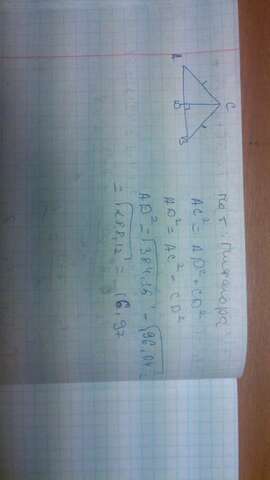 C
A
D
B
по т. Пифагора
AC² = AD² + CD²
AD² = AC² - CD²
AD² = √384,16 - √96,04 =
= √288,12 = 16,97